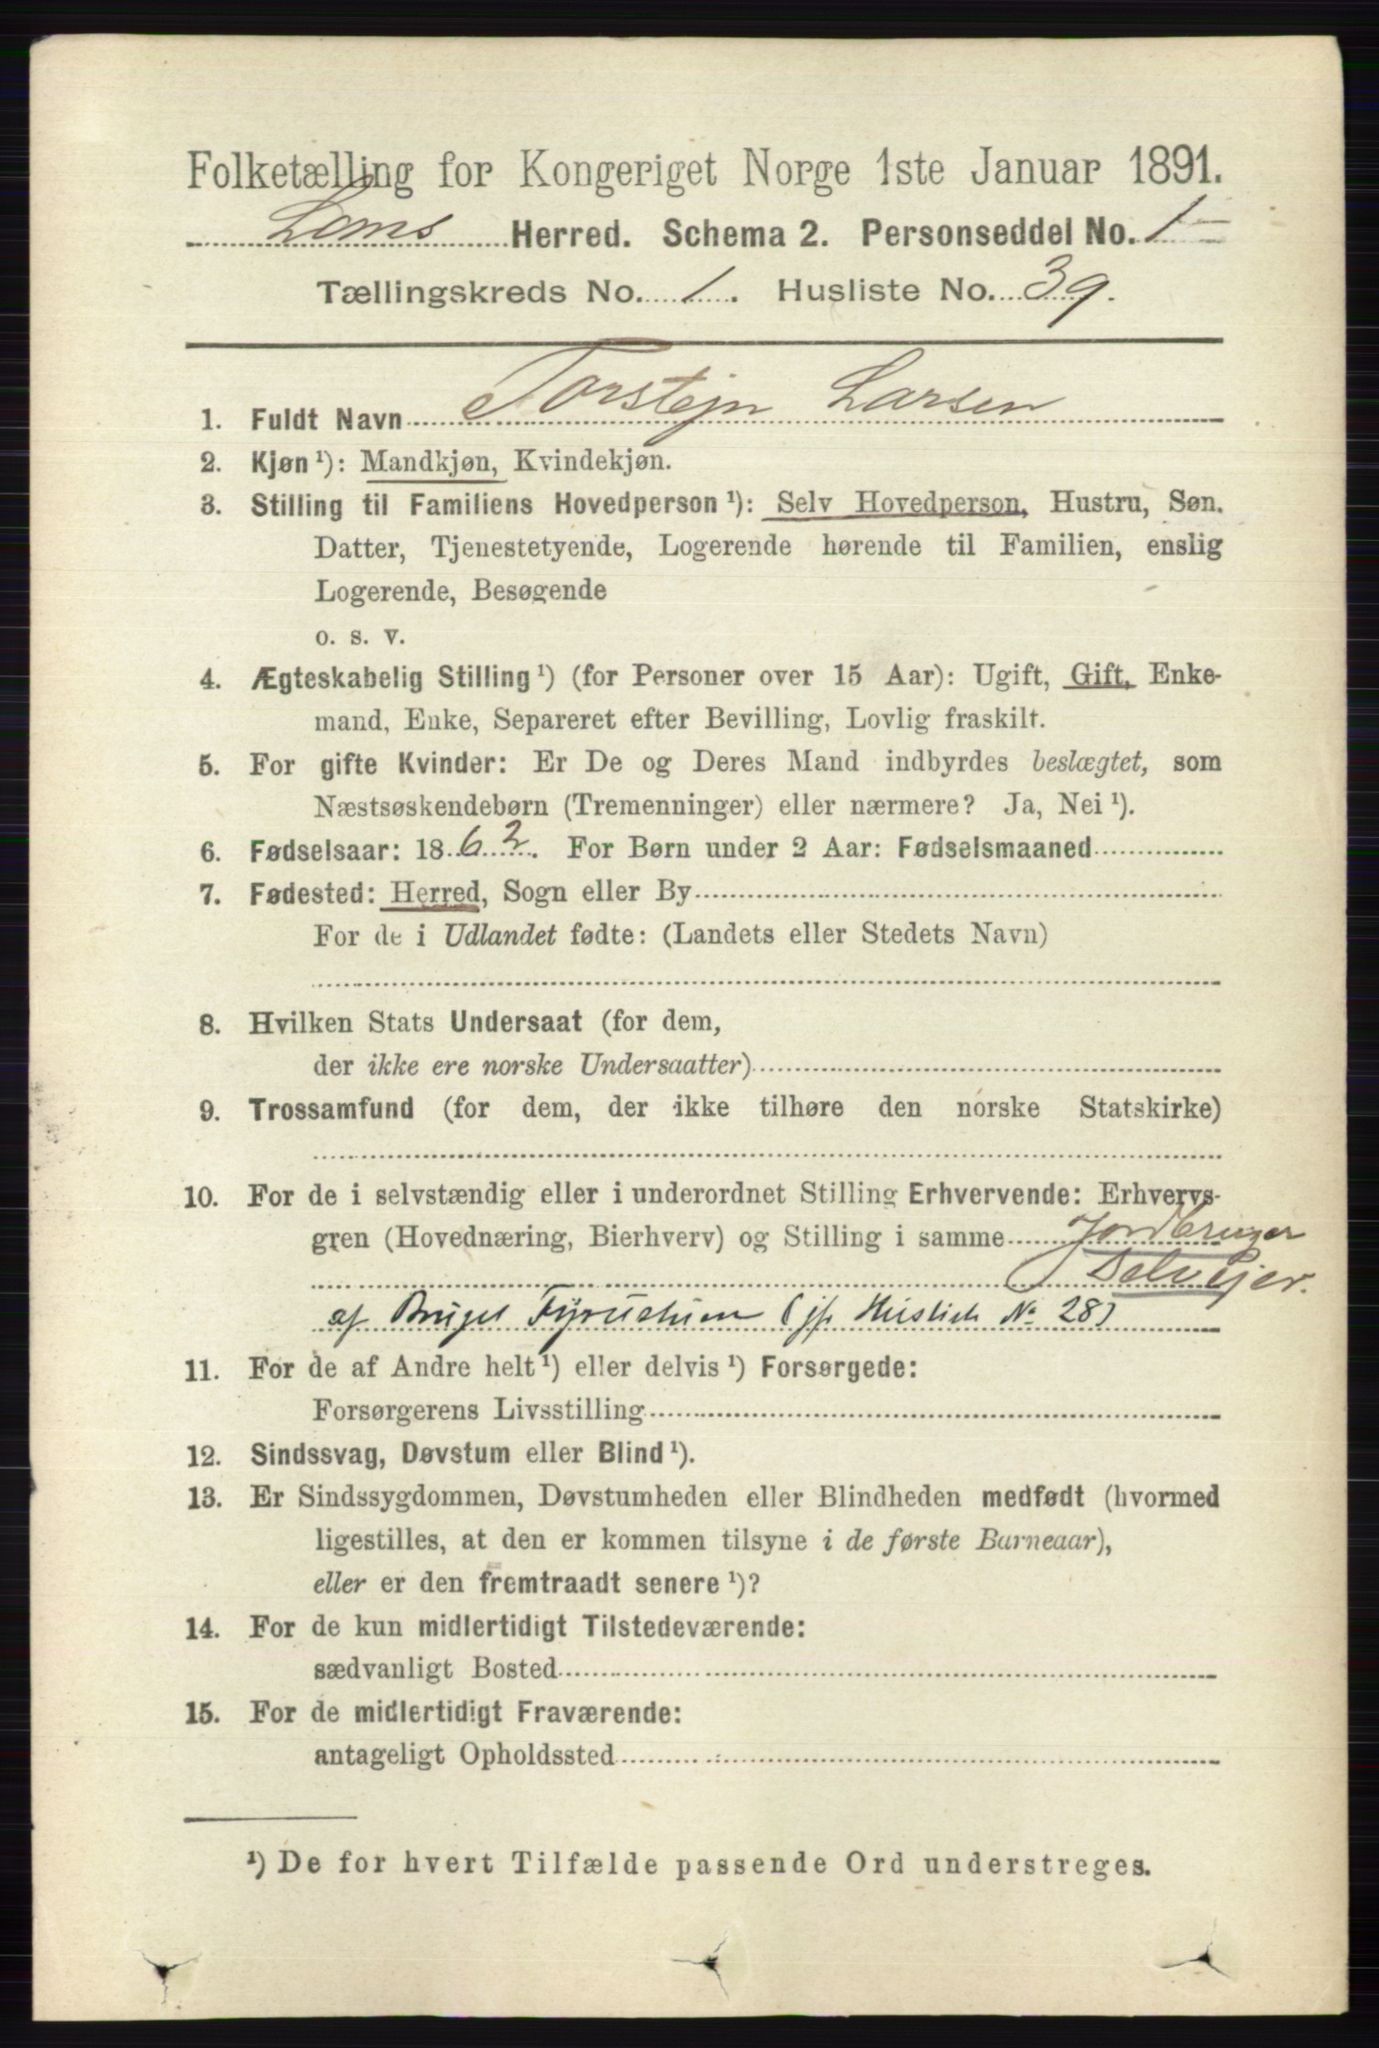 Folketælling for Kongeriget Norge 1ste Januar 1891.
Loms Herred. Schema 2. Personseddel No. 1
Tællingskreds No. 1. Husliste No. 39.
1. Fuldt Navn Torstejn Larsen
2. Kjøn ¹): Mandkjøn, Kvindekjøn.
3. Stilling til Familiens Hovedperson ¹): Selv Hovedperson, Hustru, Søn.
Datter, Tjenestetyende, Logerende hørende til Familien, enslig
Logerende, Besøgende
o. s. v.
4. Ægteskabelig Stilling ¹) (for Personer over 15 Aar): Ugift, Gift, Enke-
mand, Enke, Separeret efter Bevilling, Lovlig fraskilt.
5. For gifte Kvinder: Er De og Deres Mand indbyrdes beslægtet, som
Næstsøskendebørn (Tremenninger) eller nærmere? Ja, Nei ¹).
6. Fødselsaar: 1862. For Børn under 2 Aar: Fødselsmaaned
7. Fødested: Herred, Sogn eller By
For de i Udlandet fødte: (Landets eller Stedets Navn)
8. Hvilken Stats Undersaat (for dem,
der ikke ere norske Undersaatter)
9. Trossamfund (for dem, der ikke tilhøre den norske Statskirke)
10. For de i selvstændig eller i underordnet Stilling Erhvervende: Erhvervs-
gren (Hovednæring, Bierhverv) og Stilling i samme Jordbruger
Selvejer.
af Bruget (jfr Huslist No 28)
11. For de af Andre helt ¹) eller delvis ¹) Forsørgede:
Forsørgerens Livsstilling
12. Sindssvag, Døvstum eller Blind ¹).
13. Er Sindssygdommen, Døvstumheden eller Blindheden medfødt (hvormed
ligestilles, at den er kommen tilsyne i de første Barneaar),
eller er den fremtraadt senere ¹)?
14. For de kun midlertidigt Tilstedeværende:
sædvanligt Bosted
15. For de midlertidigt Fraværende:
antageligt Opholdssted
¹) De for hvert Tilfælde passende Ord understreges.